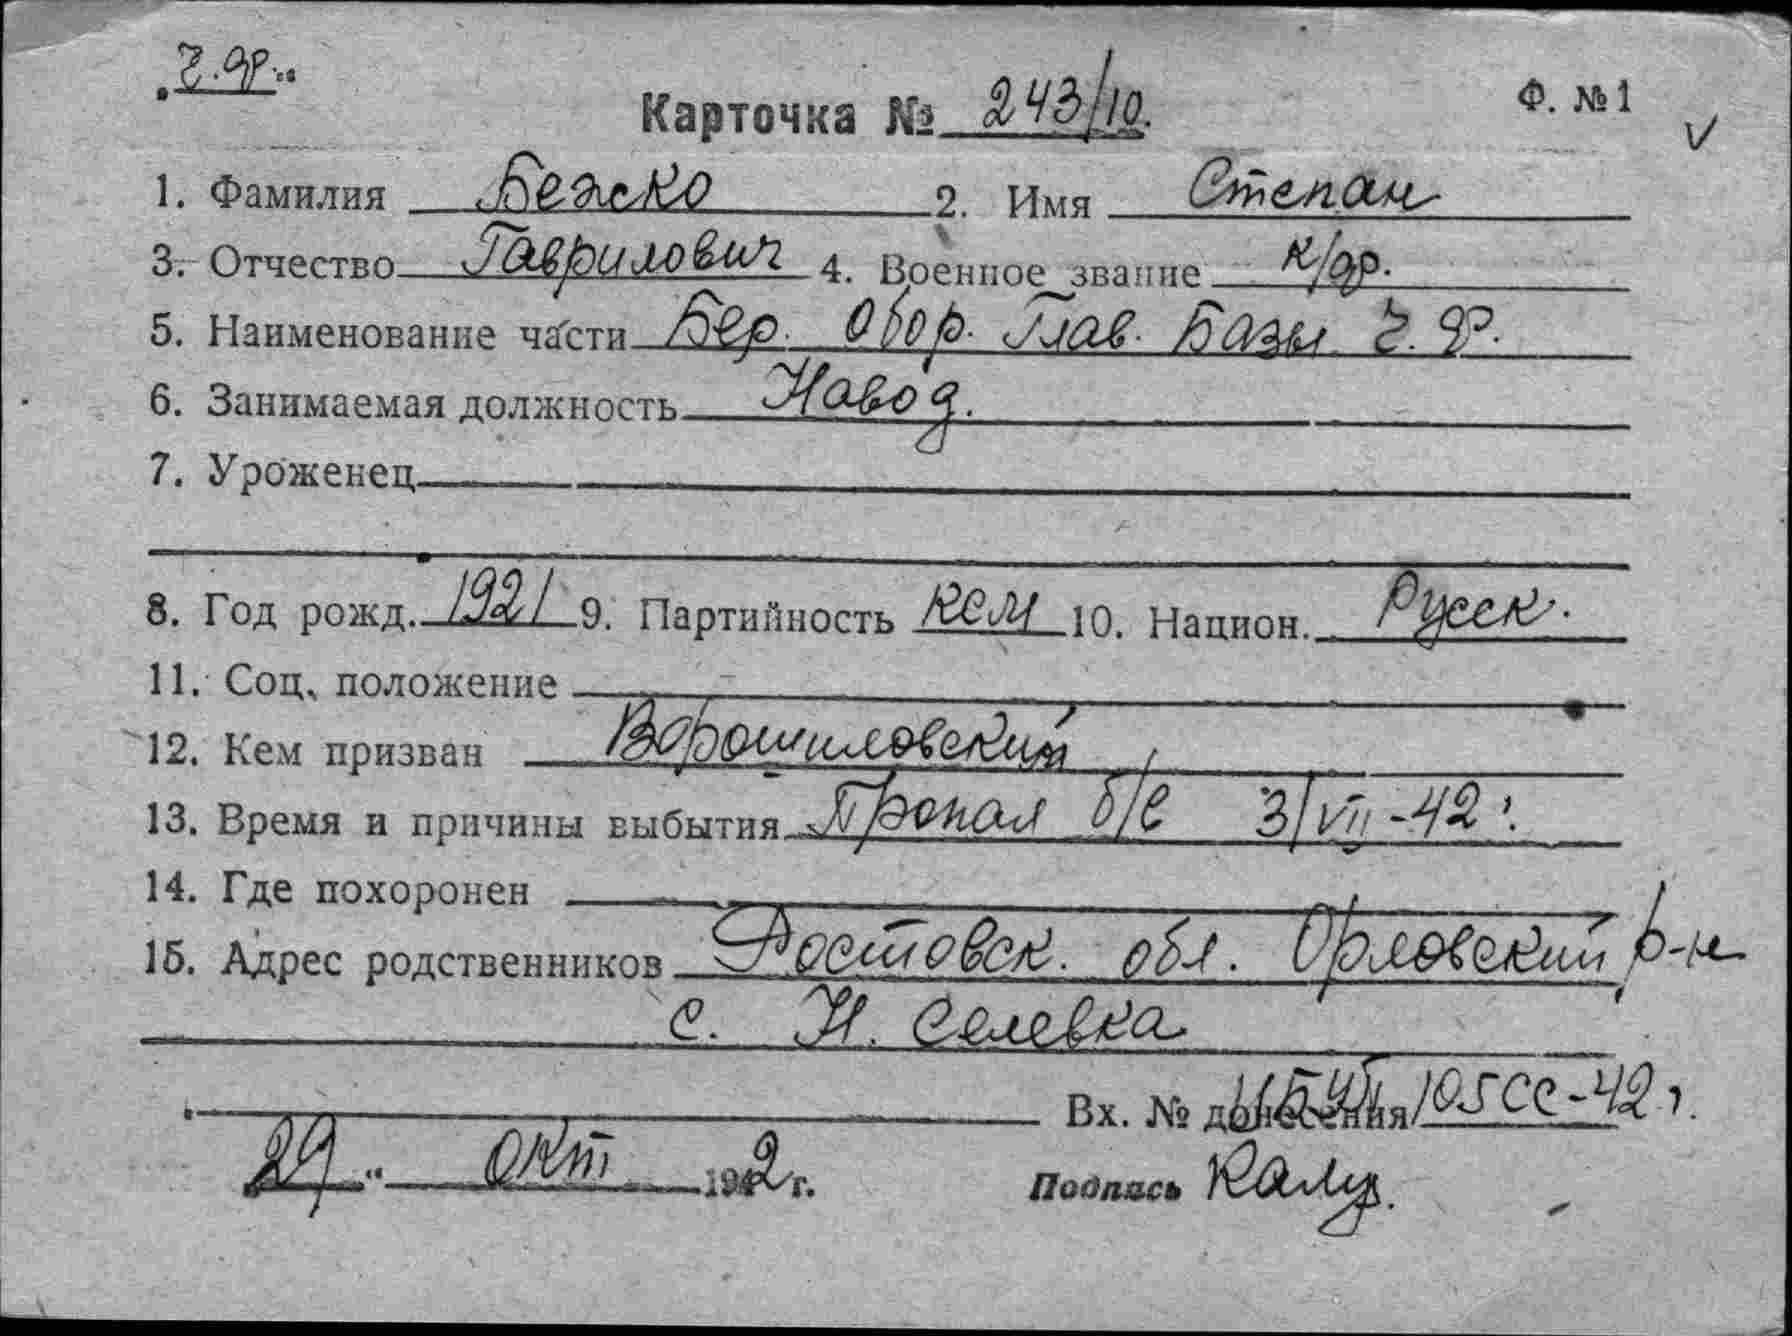 Ч.Ф.
Карточка № 243/10. Ф. №1
1. Фамилия Бежко 2. Имя Степан
3. Отчество Гаврилович 4. Военное звание к/ф.
5. Наименование части Бер. Обор. Глав. Базы Ч.Ф.
6. Занимаемая должность Навод.
7. Уроженец
8. Год рожд. 1921 9. Партийность ксм 10. Национ. Русск.
11. Соц. положение
12. Кем призван Ворошиловский
13. Время и причины выбытия Пропал б/в 3/VII-42 г.
14. Где похоронен
15. Адрес родственников Ростовск. обл. Орловский р-н
с. Н. Селевка
Вх. № донесения 105сс-42 г.
29 окт 1942 г. Подпись